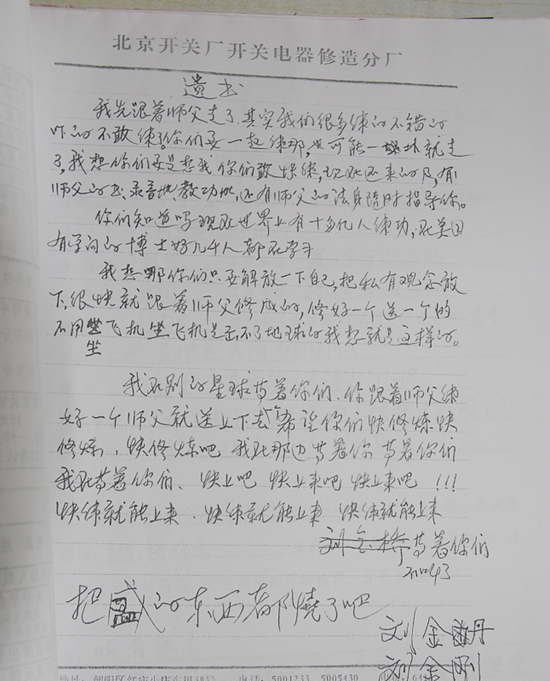 北京开关厂开关电器修造分厂
遗书
我先跟着师父走了其实我们很多练的不错的
吓的不敢练,你们要一起练那,也可能一块就走
了,我想你们要是想我你们敢快练,现在还来的及,有
师父的书、录音带、教功带,还有师父的法身随时指导你。
你们知道吗现在世界上有十多亿人练功,在美国
有学问的博士好几千人都在学
我想哪你们只要解放一下自己,把私有观念放
下,很快就跟着师父修成的,修好一个送一个的
不用坐飞机坐飞机是去不了地球的我想就是这样的。
坐
我在别的星球等着你们,你跟着师父练
好一个师父就送上下去希望你们快修炼快
修炼,快修炼吧 我在那边等着你 等着你们
我在等着你们、快上吧 快上来吧 快上来吧 !!!
快练就能上来、快练就能上来 快练就能上来
等着你们
把 的东西都烧了吧
刘金丹
刘金刚
电话:5001233 5005430